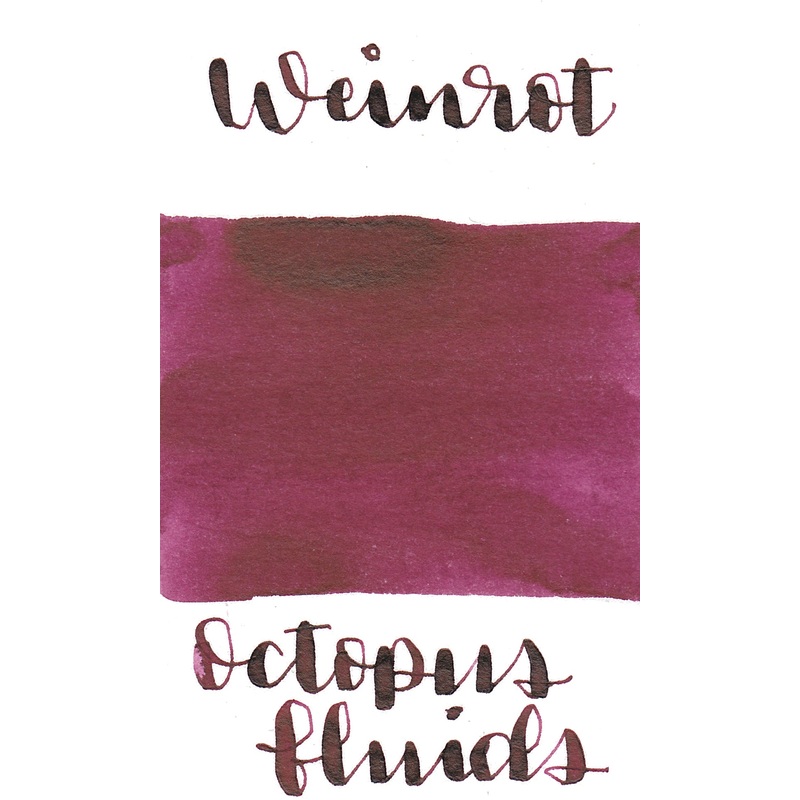 Weinrot
Octopus
fluids